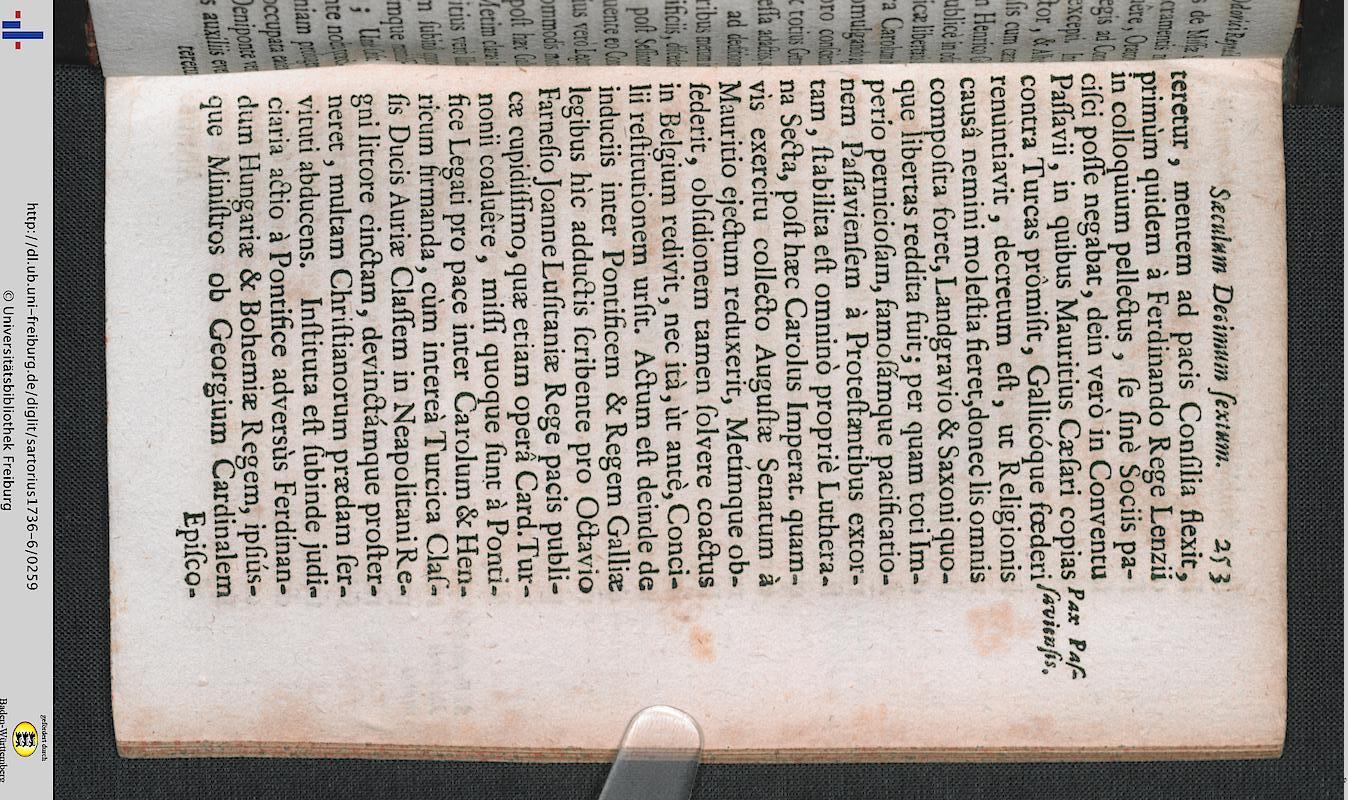 Sæculum Decimum ſextum. 253
teretur, mentem ad pacis Conſilia flexit,
primùm quidem à Ferdinando Rege Lenzii
in colloquium pellectus, ſe ſinè Sociis pa-
ciſci poſſe negabat, dein verò in Conventu
Paſſavii, in quibus Mauritius Cæſari copias
contra Turcas prômiſit, Gallicóque fœderi
Pax Paſ-
ſavienſis.
renuntiavit, decretum eſt, ut Religionis
causâ nemini moleſtia fieret, donec lis omnis
compoſita foret, Landgravio & Saxoni quo-
que libertas reddita fuit; per quam toti Im-
perio pernicioſam, famoſámque pacificatio-
nem Paſſavienſem à Proteſtantibus extor-
tam, ſtabilita eſt omninò propriè Luthera-
na Secta, poſt hæc Carolus Imperat. quam-
vis exercitu collecto Auguſtæ Senatum à
Mauritio ejectum reduxerit, Metimque ob-
ſederit, obſidionem tamen ſolvere coactus
in Belgium redivit, nec ità, ùt antè, Conci-
lii reſtitutionem urſit. Actum eſt deinde de
induciis inter Pontificem & Regem Galliæ
legibus hìc adductis ſcribente pro Octavio
Farneſio Joanne Luſitaniæ Rege pacis publi-
cæ cupidiſſimo, quæ etiam operâ Card. Tur-
nonii coaluêre, miſſi quoque ſunt à Ponti-
fice Legati pro pace inter Carolum & Hen-
ricum firmanda, cùm intereà Turcica Claſ-
ſis Ducis Auriæ Claſſem in Neapolitani Re-
gni littore cinctam, devinctámque proſter-
neret, multam Chriſtianorum prædam ſer-
vituti abducens. Inſtituta eſt ſubinde judi-
ciaria actio à Pontifice adversùs Ferdinan-
dum Hungariæ & Bohemiæ Regem, ipſiús-
que Miniſtros ob Georgium Cardinalem
Epiſco-
http://dl.ub.uni-freiburg.de/diglit/sartorius1736-6/0259
© Universitätsbibliothek Freiburg
gefördert durch
Baden-Württemberg